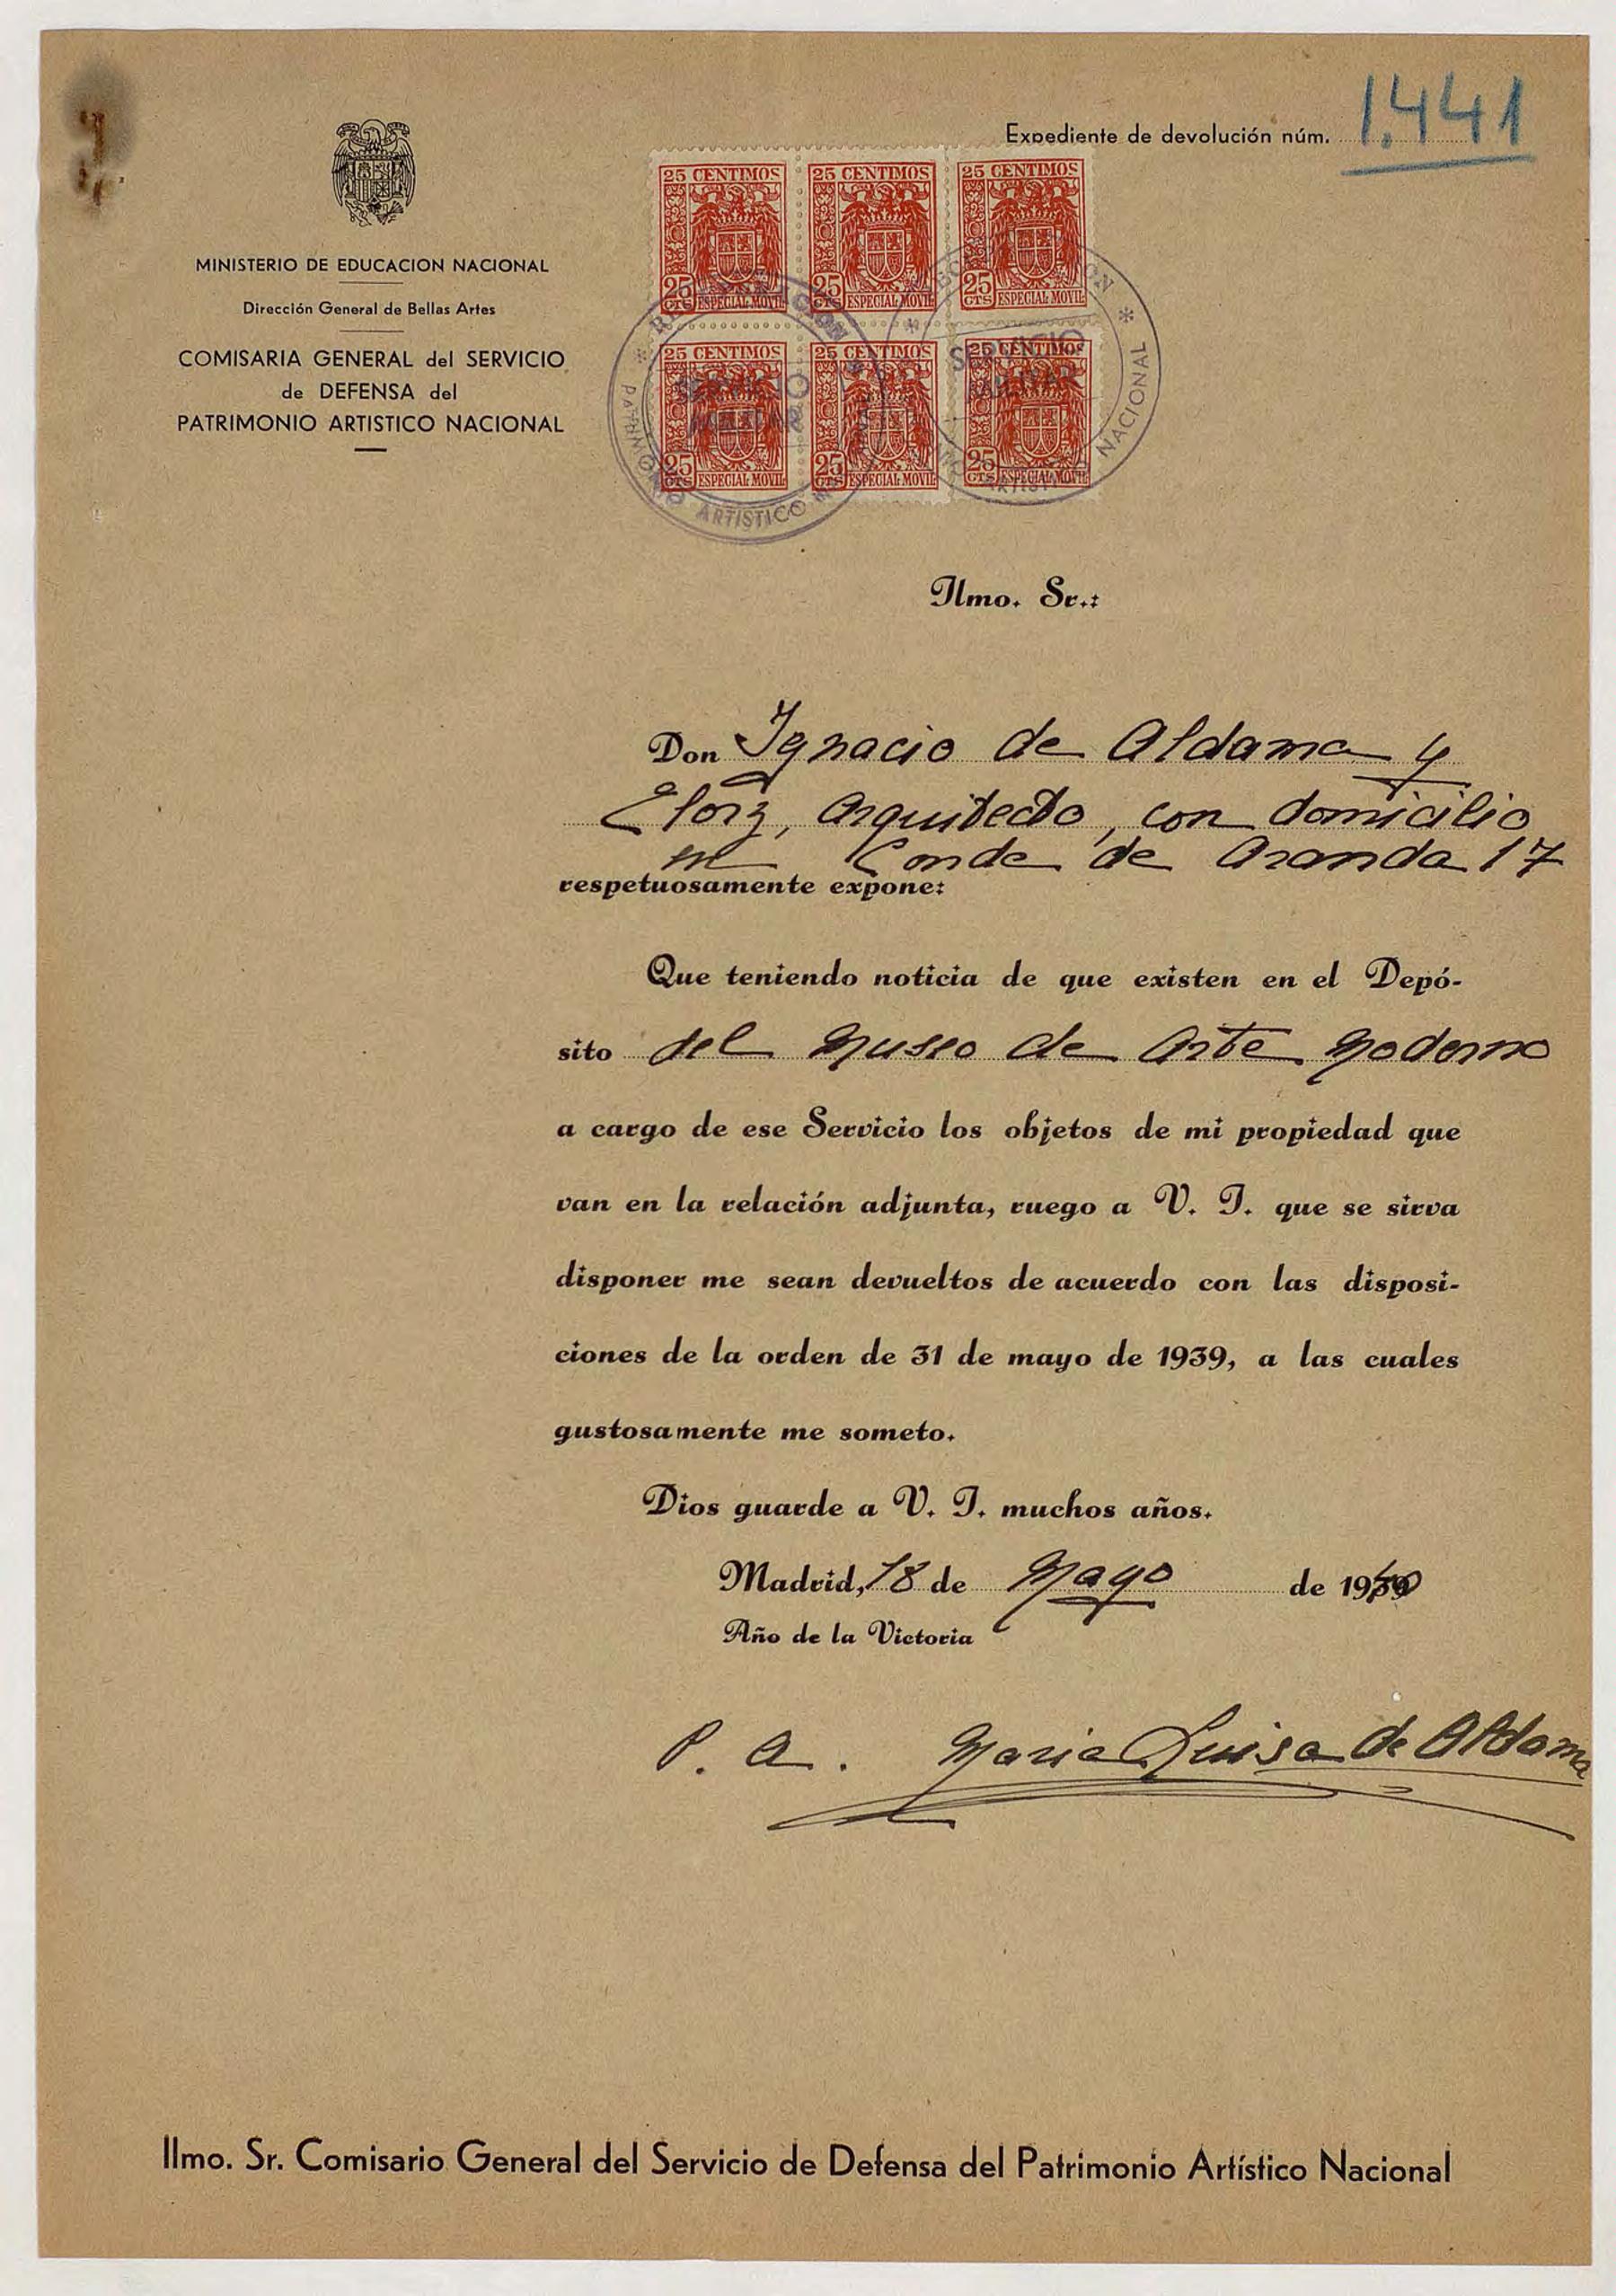 Expediente de devolución núm. 1.441
MINISTERIO DE EDUCACION NACIONAL
Dirección General de Bellas Artes
COMISARIA GENERAL del SERVICIO
de DEFENSA del
PATRIMONIO ARTISTICO NACIONAL
25 CENTIMOS 25 CENTIMOS 25 CENTIMOS
25 CTS ESPECIAL MOVIL 25 CTS ESPECIAL MOVIL 25 CTS ESPECIAL MOVIL
25 CENTIMOS 25 CENTIMOS 25 CENTIMOS
25 CTS ESPECIAL MOVIL 25 CTS ESPECIAL MOVIL 25 CTS ESPECIAL MOVIL
SERVICIO
MILITAR
PATRIMONIO ARTISTICO
SERVICIO
MILITAR
NACIONAL
Ilmo. Sr.:
Don Ignacio de Aldama y
Elorz, Arquitecto, con domicilio
en Conde de Aranda 17
respetuosamente expone:
Que teniendo noticia de que existen en el Depó-
sito del Museo de Arte Moderno
a cargo de ese Servicio los objetos de mi propiedad que
van en la relación adjunta, ruego a V. I. que se sirva
disponer me sean devueltos de acuerdo con las disposi-
ciones de la orden de 31 de mayo de 1939, a las cuales
gustosamente me someto.
Dios guarde a V. I. muchos años.
Madrid, 18 de Mayo de 1940
Año de la Victoria
P. A. Maria Luisa de Aldama
Ilmo. Sr. Comisario General del Servicio de Defensa del Patrimonio Artístico Nacional